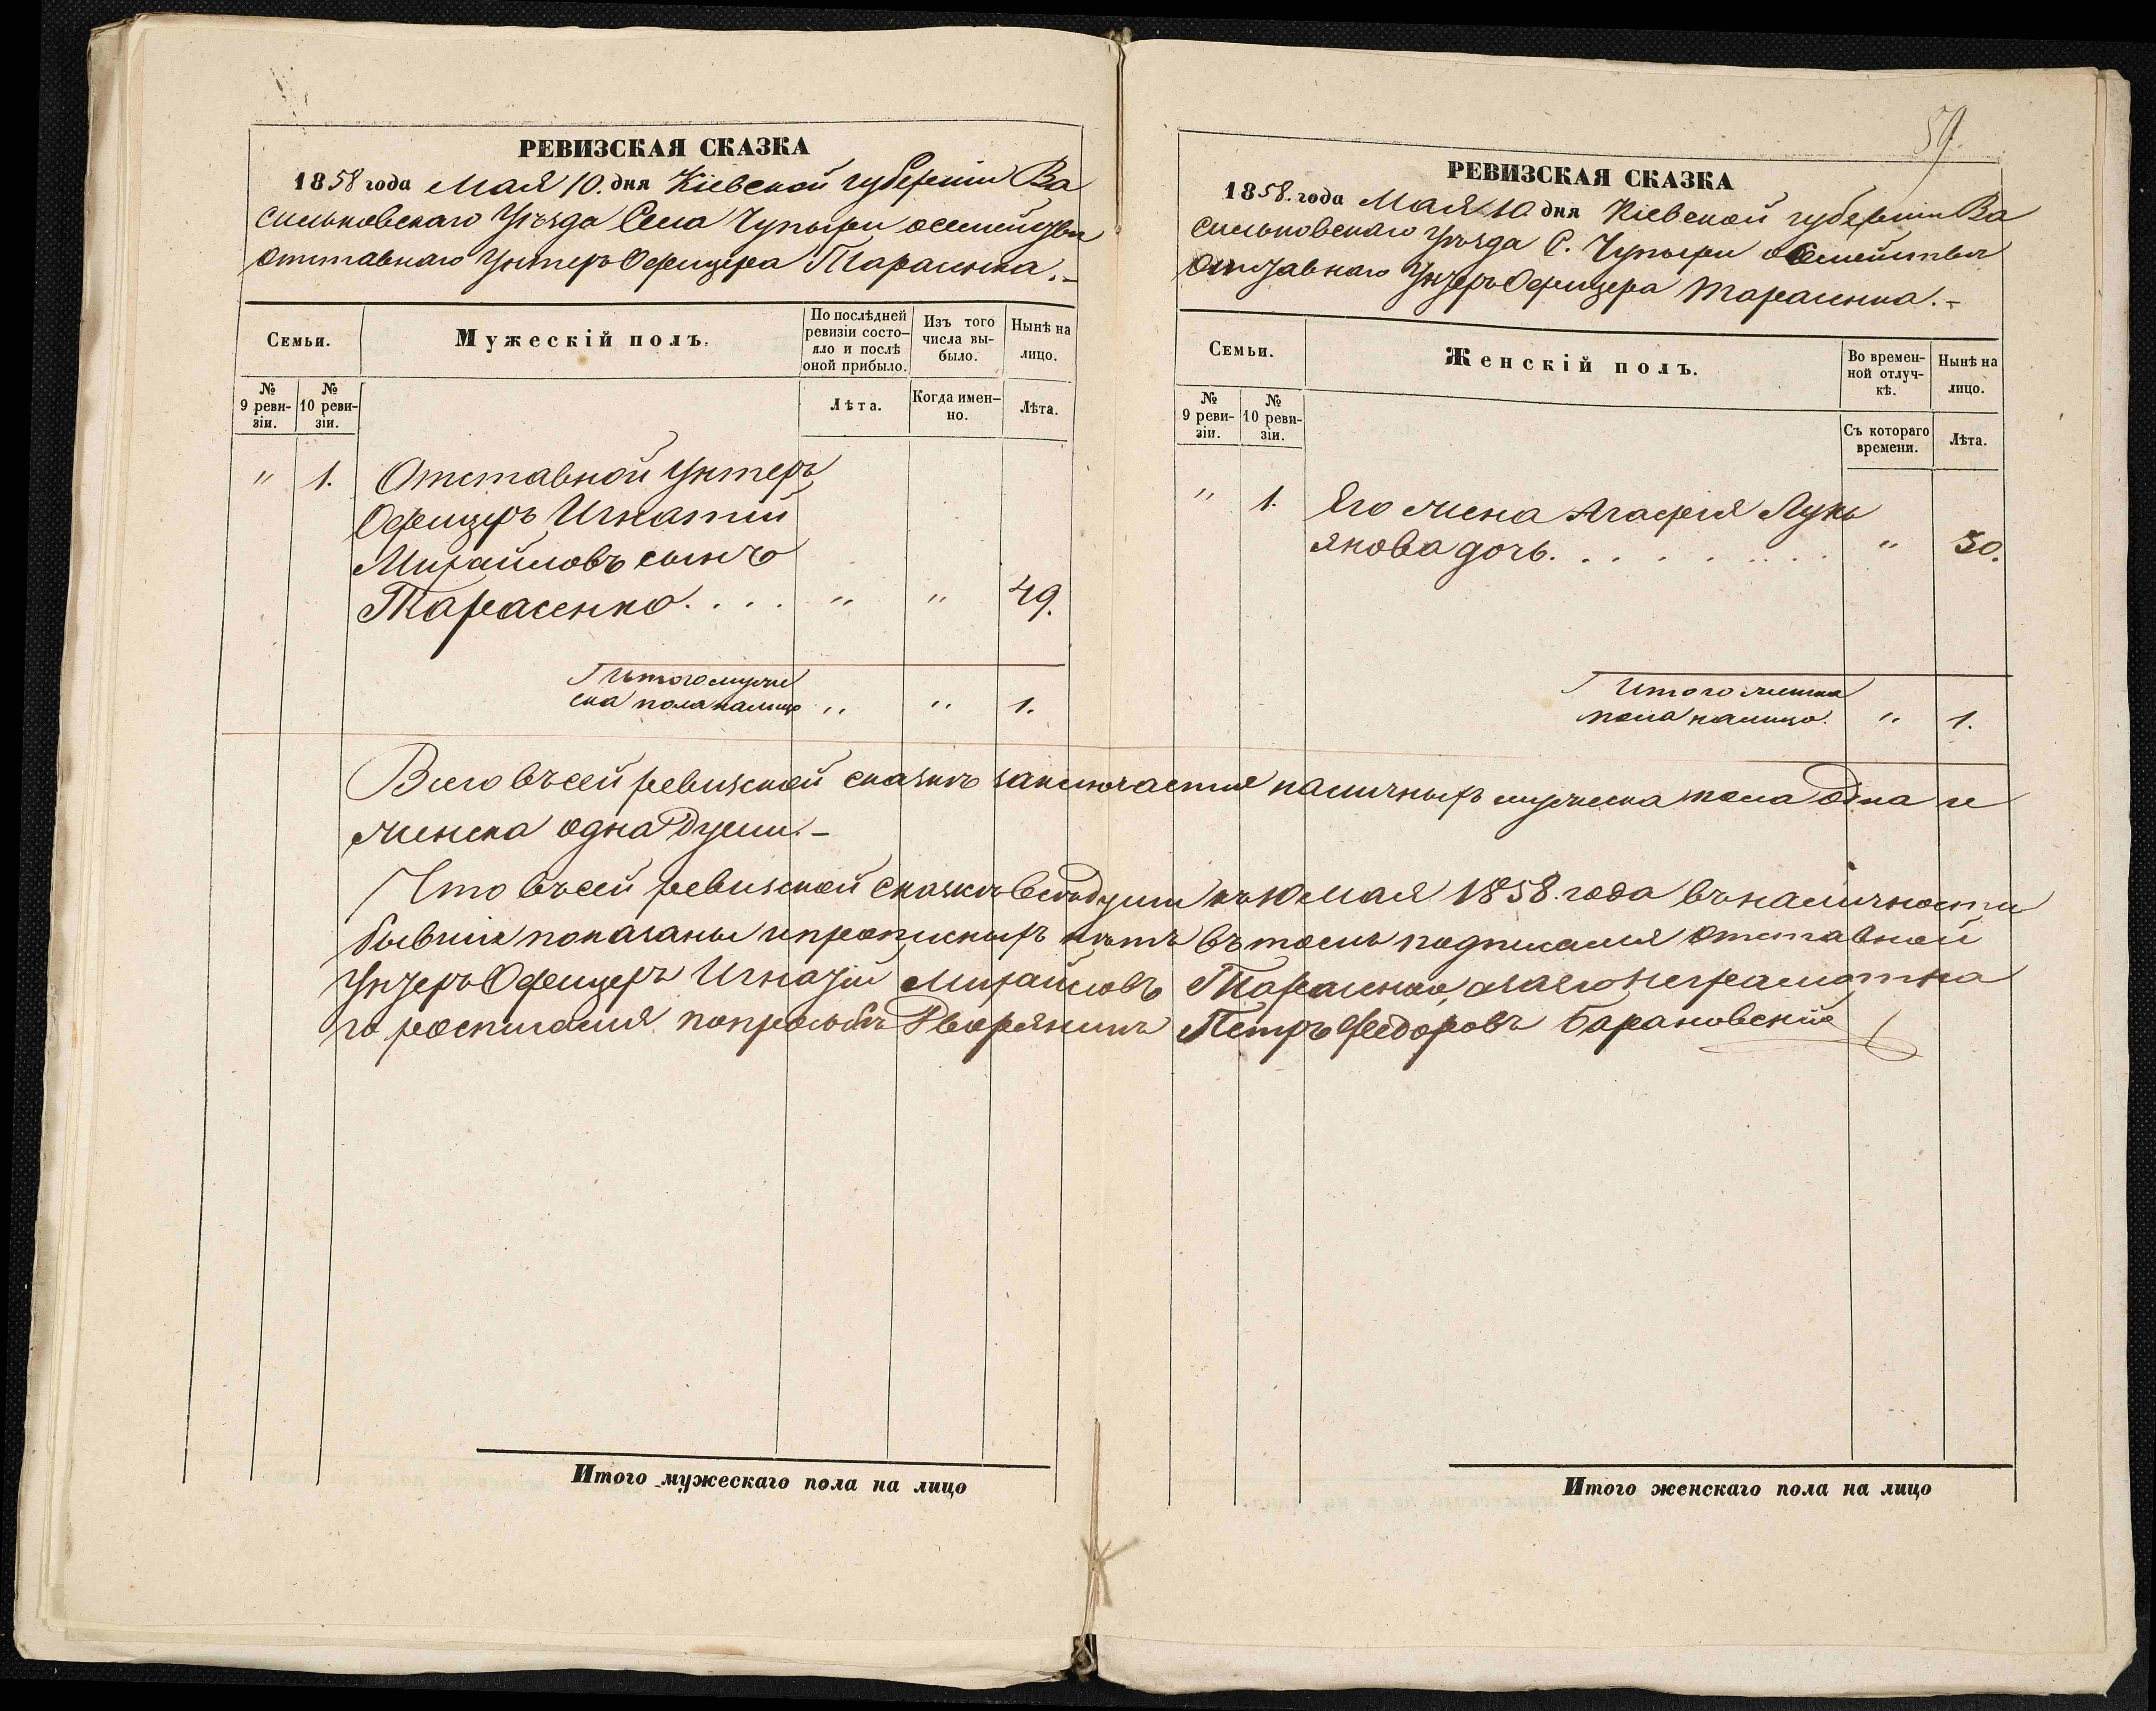 РЕВИЗСКАЯ СКАЗКА
1858 года Мая 10. дня Кіевской губерніи Ва
сильковскаго Уѣзда Села Чупыри о семействѣ
отставнаго Унтеръ Офицера Тарасенка.-
Семьи.
Мужескій полъ.
По послѣдней
ревизіи состо-
яло и послѣ
оной прибыло.
Изъ того
числа вы-
было.
Нынѣ на
лицо.
№
9 реви-
зіи.
№
10 реви-
зіи.
Лѣта.
Когда имен-
но.
Лѣта.
" 1. Отставной Унтеръ
Офицеръ Игнатій
Михайловъ сынъ
Тарасенко. . . . " " 49.
Итого муже
ска пола налицо " " 1.
59.
РЕВИЗСКАЯ СКАЗКА
1858. года Мая 10. дня Кіевской губерніи Ва
сильковскаго Уѣзда С. Чупыри о Семействѣ
Отставнаго Унтеръ Офицера Тарасенка.-
Семьи.
Женскій полъ.
Во времен-
ной отлуч-
кѣ.
Нынѣ на
лицо.
№
9 реви-
зіи.
№
10 реви-
зіи.
Съ котораго
времени.
Лѣта.
" 1. Его жена Агафія Лукь
янова дочь. . . . . . . . . " 30.
Итого женска
пола налицо. " 1.
Всего въ сей ревизской сказкѣ заключается наличныхъ мужеска пола одна и
женска одна души.-
Что въ сей ревизской сказкѣ всѣ души къ 10 Мая 1858. года въ наличности
бывшія показаны и прописныхъ нѣтъ въ томъ подписался отставной
Унтеръ Офицеръ Игнатій Михайловъ Тарасенко, а за его неграмотна
го росписался по просьбѣ Дворянинъ Петръ Федоровъ Барановскій
Итого мужескаго пола на лицо
Итого женскаго пола на лицо